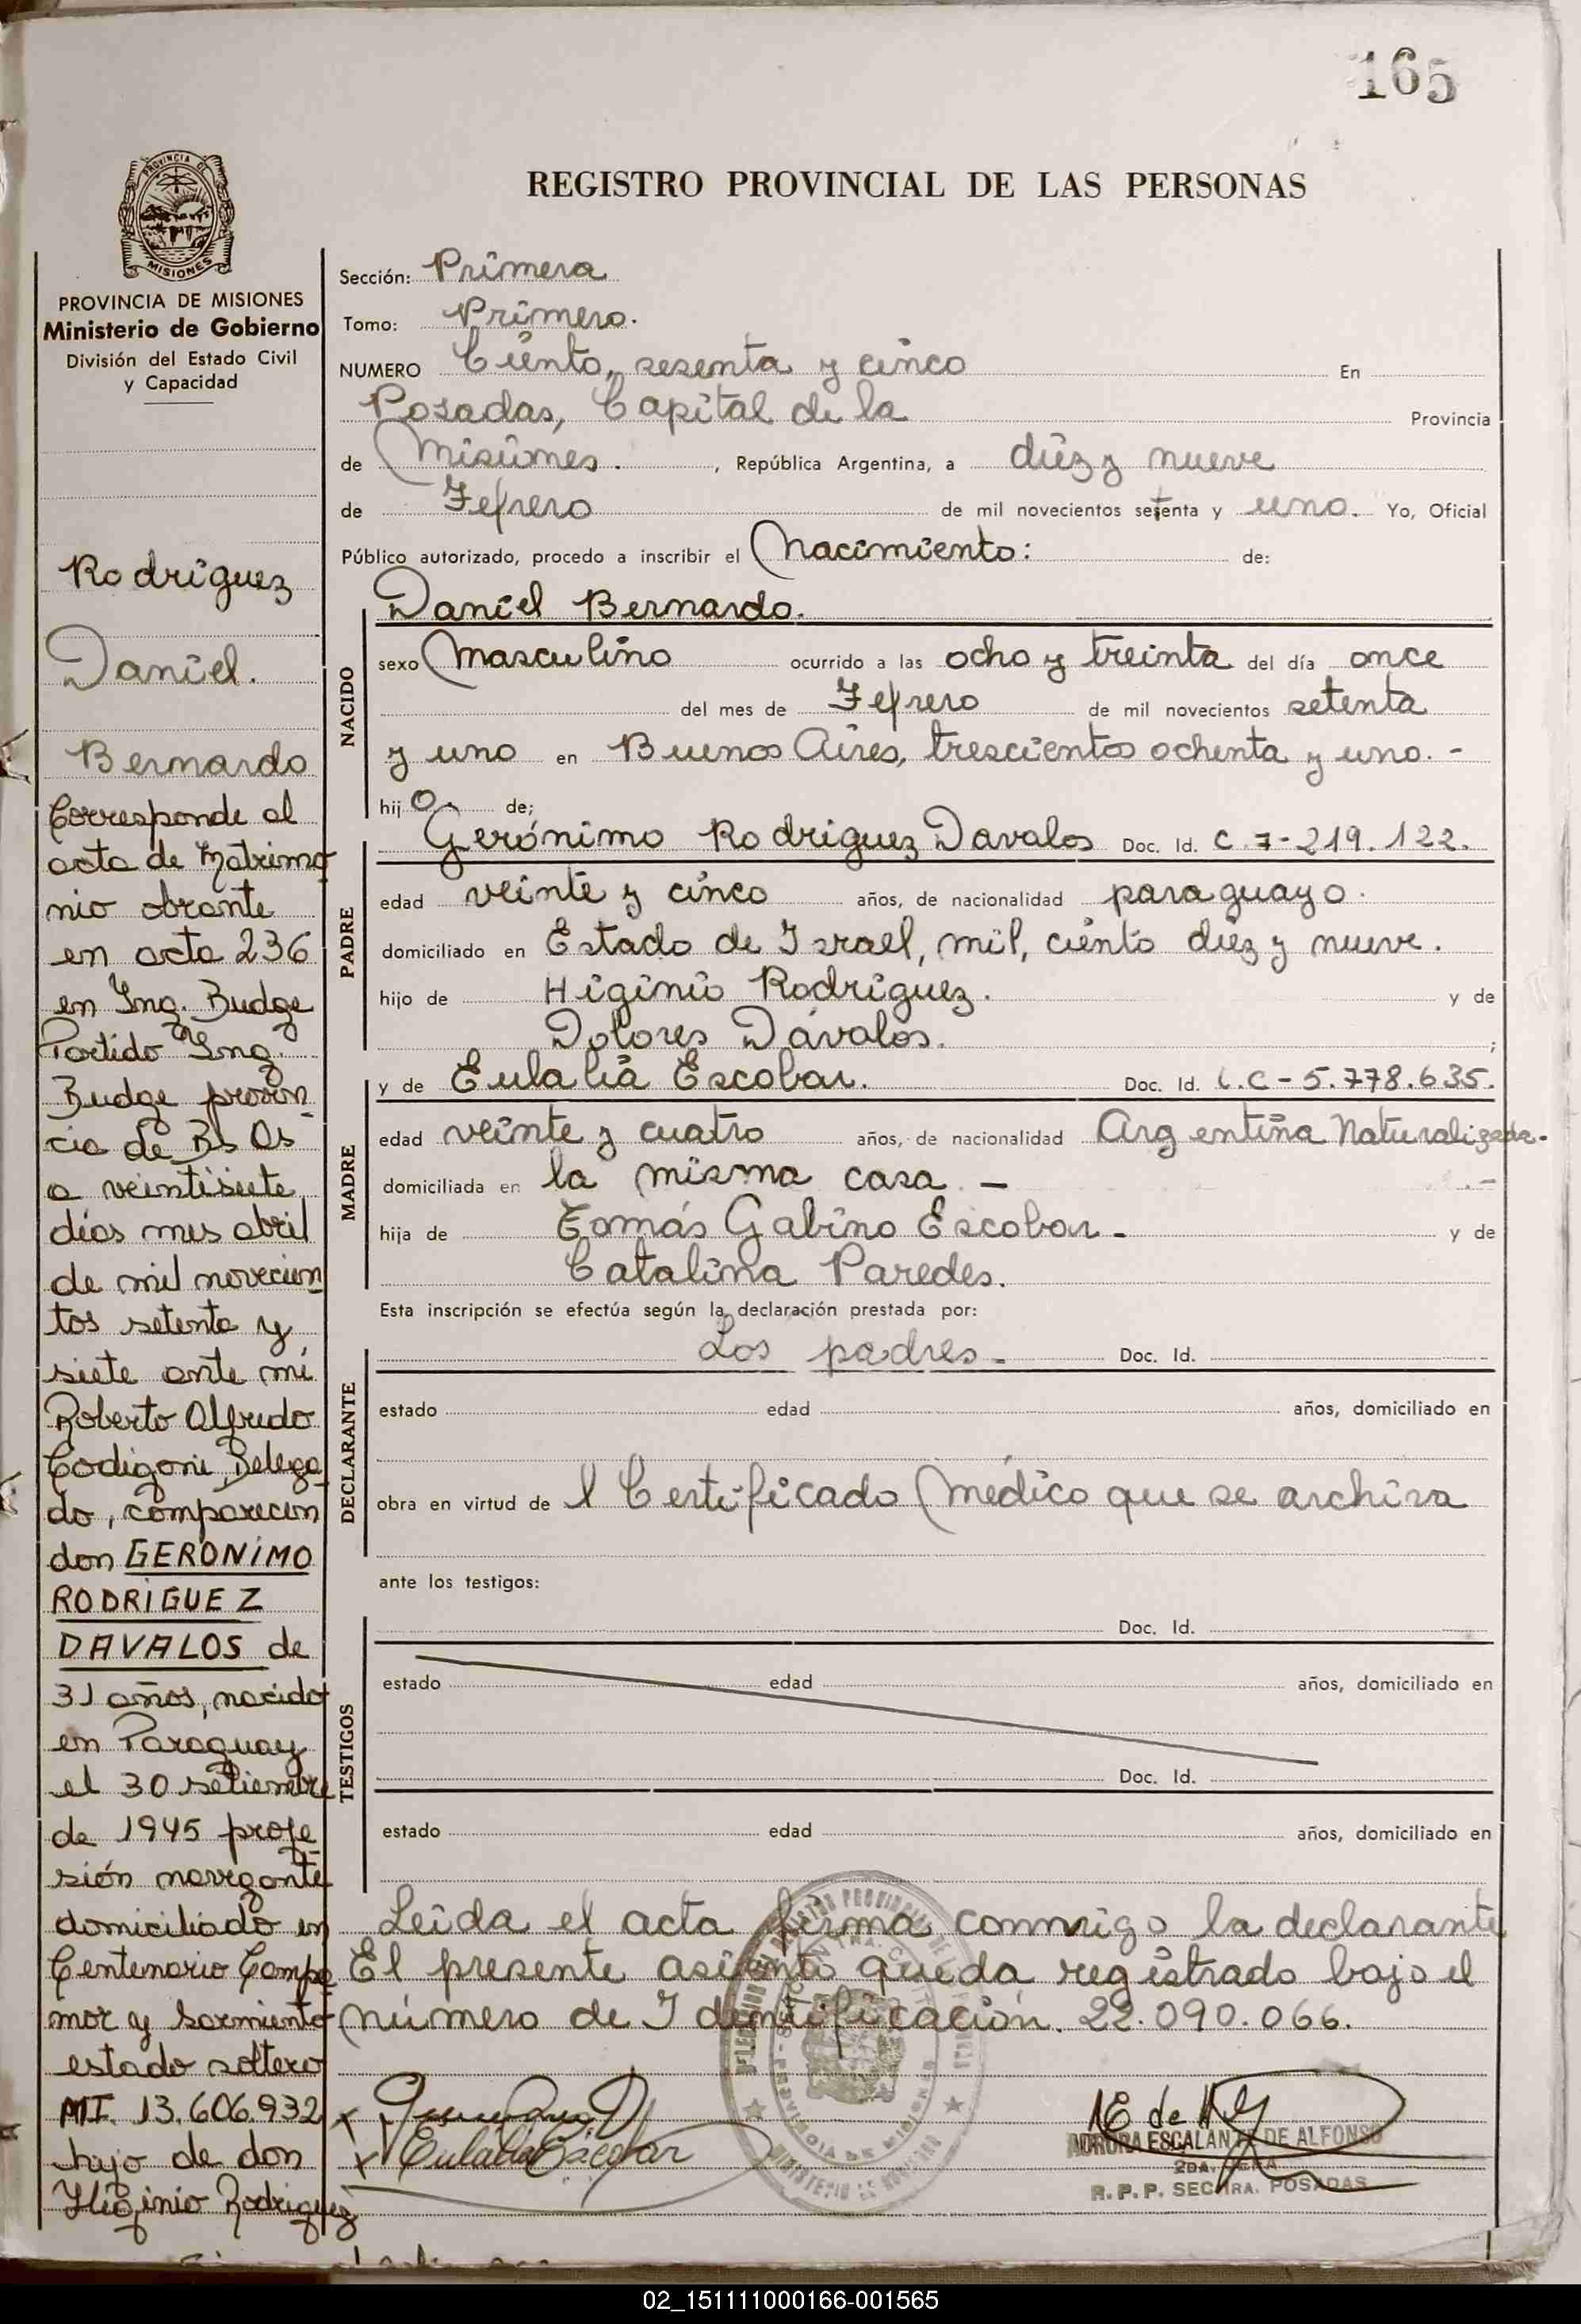 165
REGISTRO PROVINCIAL DE LAS PERSONAS
PROVINCIA DE
MISIONES
PROVINCIA DE MISIONES
Ministerio de Gobierno
División del Estado Civil
y Capacidad
Rodríguez
Daniel.
Bernardo
Corresponde al
acta de Matrimo
nio obrante
en acta 236
en Ing. Budge
Partido Ing.
Budge provin
cia de Bs As
a veintisiete
días mes abril
de mil novecien
tos setenta y
siete ante mí
Roberto Alfredo
Codigoni Delega
do, comparecen
don GERONIMO
RODRIGUEZ
DAVALOS de
31 años, nacido
en Paraguay
el 30 setiembre
de 1945 profe
sión navegante
domiciliado en
Centenario Campo
mor y Sarmiento
estado soltero
MI. 13.606.932
hijo de don
Higinio Rodriguez
Sección: Primera
Tomo: Primero.
NUMERO Ciento, sesenta y cinco En
Posadas, Capital de la Provincia
de Misiones. , República Argentina, a diez y nueve
de Febrero de mil novecientos setenta y uno. Yo, Oficial
Público autorizado, procedo a inscribir el Nacimiento: de:
Daniel Bernardo.
NACIDO
sexo Masculino ocurrido a las ocho y treinta del día once
del mes de Febrero de mil novecientos setenta
y uno en Buenos Aires, trescientos ochenta y uno. -
hijo. de;
PADRE
Gerónimo Rodriguez Davalos Doc. Id. C.7-219.122.
edad veinte y cinco años, de nacionalidad paraguayo.
domiciliado en Estado de Israel, mil, ciento diez y nueve.
hijo de Higinio Rodríguez. y de
Dolores Dávalos. ;
MADRE
y de Eulalia Escobar. Doc. Id. L.C-5.778.635.
edad veinte y cuatro años, de nacionalidad Argentina Naturalizada.
domiciliada en la misma casa. -
hija de Tomás Gabino Escobar - y de
Catalina Paredes.
Esta inscripción se efectúa según la declaración prestada por:
DECLARANTE
Los padres - Doc. Id.
estado edad años, domiciliado en
obra en virtud de l Certificado Médico que se archiva
ante los testigos:
TESTIGOS
Doc. Id.
estado edad años, domiciliado en
Doc. Id.
estado edad años, domiciliado en
Leída el acta firma conmigo la declarante
El presente asiento queda registrado bajo el
número de Identificación. 22.090.066.
Eulalia Escobar
AURORA ESCALANTE DE ALFONSO
R. P. P. SEC. 1RA. POSADAS
02_151111000166-001565